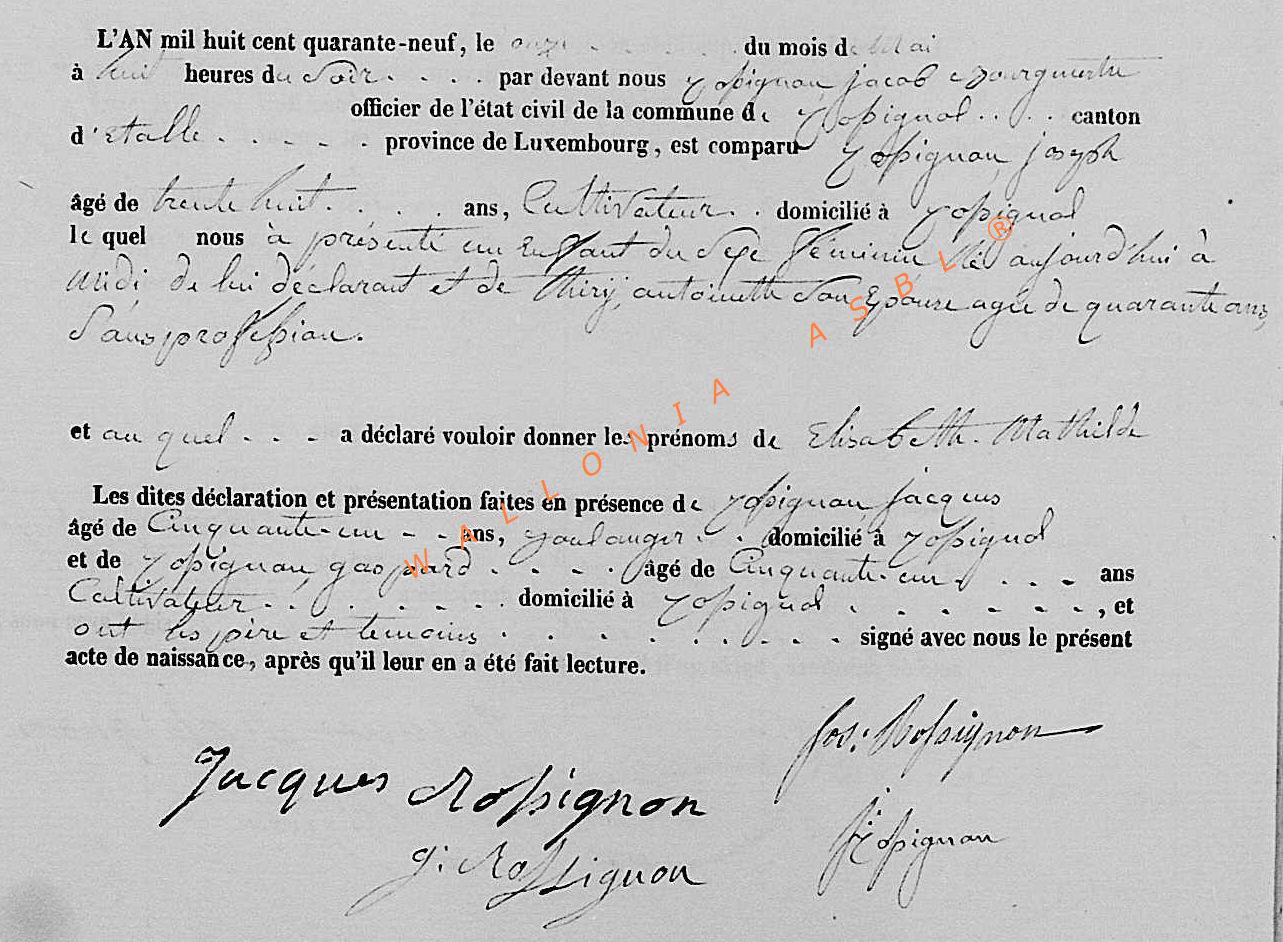 L'AN mil huit cent quarante-neuf, le onze . . . . . . du mois de Mai
à huit heures du Soir . . . . par devant nous Rossignon, jacob Bourgmestre
officier de l'état civil de la commune de Rossignol . . . . canton
d'etalle . . . . . province de Luxembourg, est comparu Rossignon, joseph
âgé de trente huit . . . . ans, Cultivateur . . domicilié à Rossignol
le quel nous à présenté un Enfant du Sexe féminin Né aujourd'hui à
midi de lui déclarant et de Thiry, antoinette Son Epouse agée de quarante ans,
Sans profession.
et au quel . . . a déclaré vouloir donner les prénoms de Elisabeth. Mathilde
Les dites déclaration et présentation faites en présence de Rossignon jacques
âgé de Cinquante-un - - ans, boulanger . . domicilié à Rossignol
et de Rossignon, gaspard . . . . âgé de Cinquante-un . . . . ans
Cultivateur . . . . . . . domicilié à Rossignol . . . . . . , et
ont les père et temoins . . . . . . . . . signé avec nous le présent
acte de naissance, après qu'il leur en a été fait lecture.
Jos: Rossignon
Jacques Rossignon
j: Rossignon
g: Rossignon
WALLONIA ASBL ®